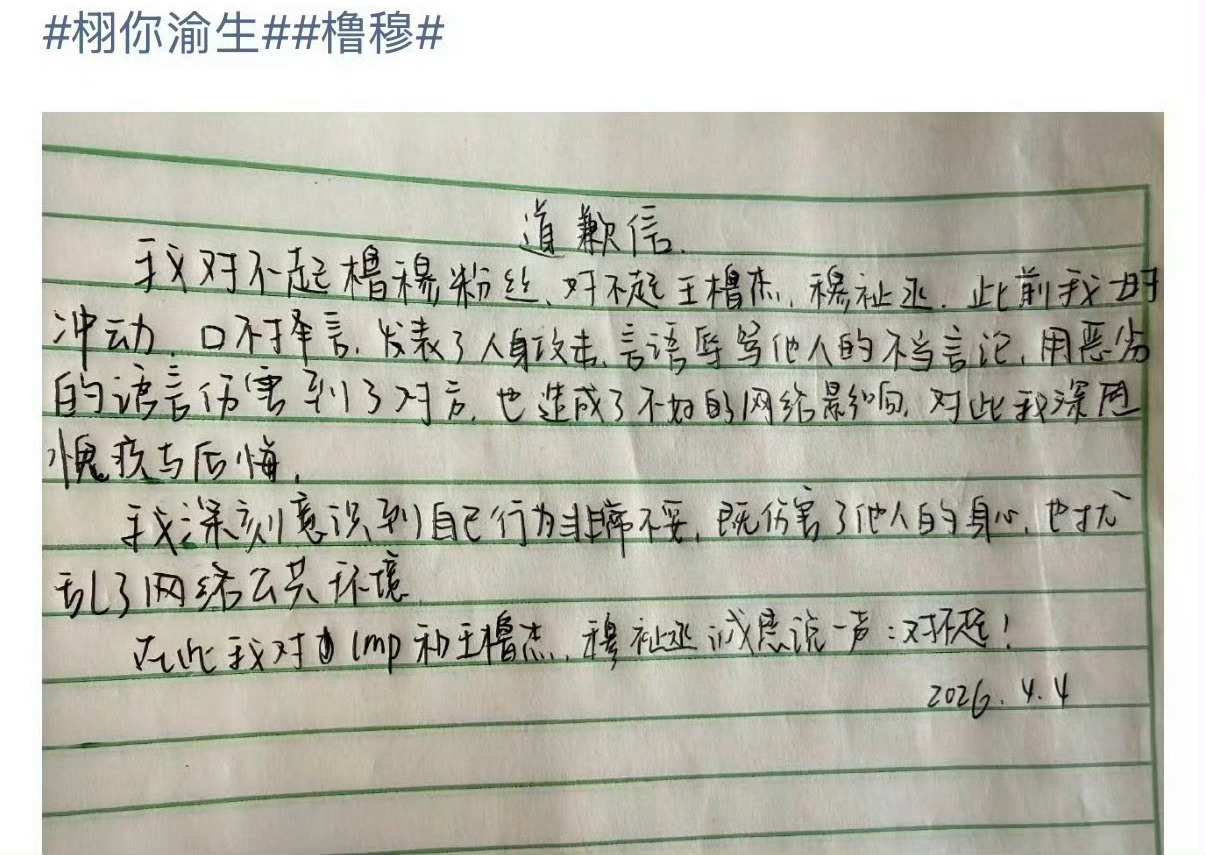 #栩你渝生##橹穆#
道歉信.
我对不起橹穆粉丝、对不起王橹杰、穆祉丞. 此前我一时
冲动、口不择言, 发表了人身攻击、言语辱骂他人的不当言论, 用恶劣
的语言伤害到了对方, 也造成了不好的网络影响, 对此我深感
愧疚与后悔.
我深刻意识到自己行为非常不妥, 既伤害了他人的身心, 也扰
乱了网络公共环境.
在此我对 lmp 和王橹杰、穆祉丞诚恳说一声:对不起!
2026.4.4